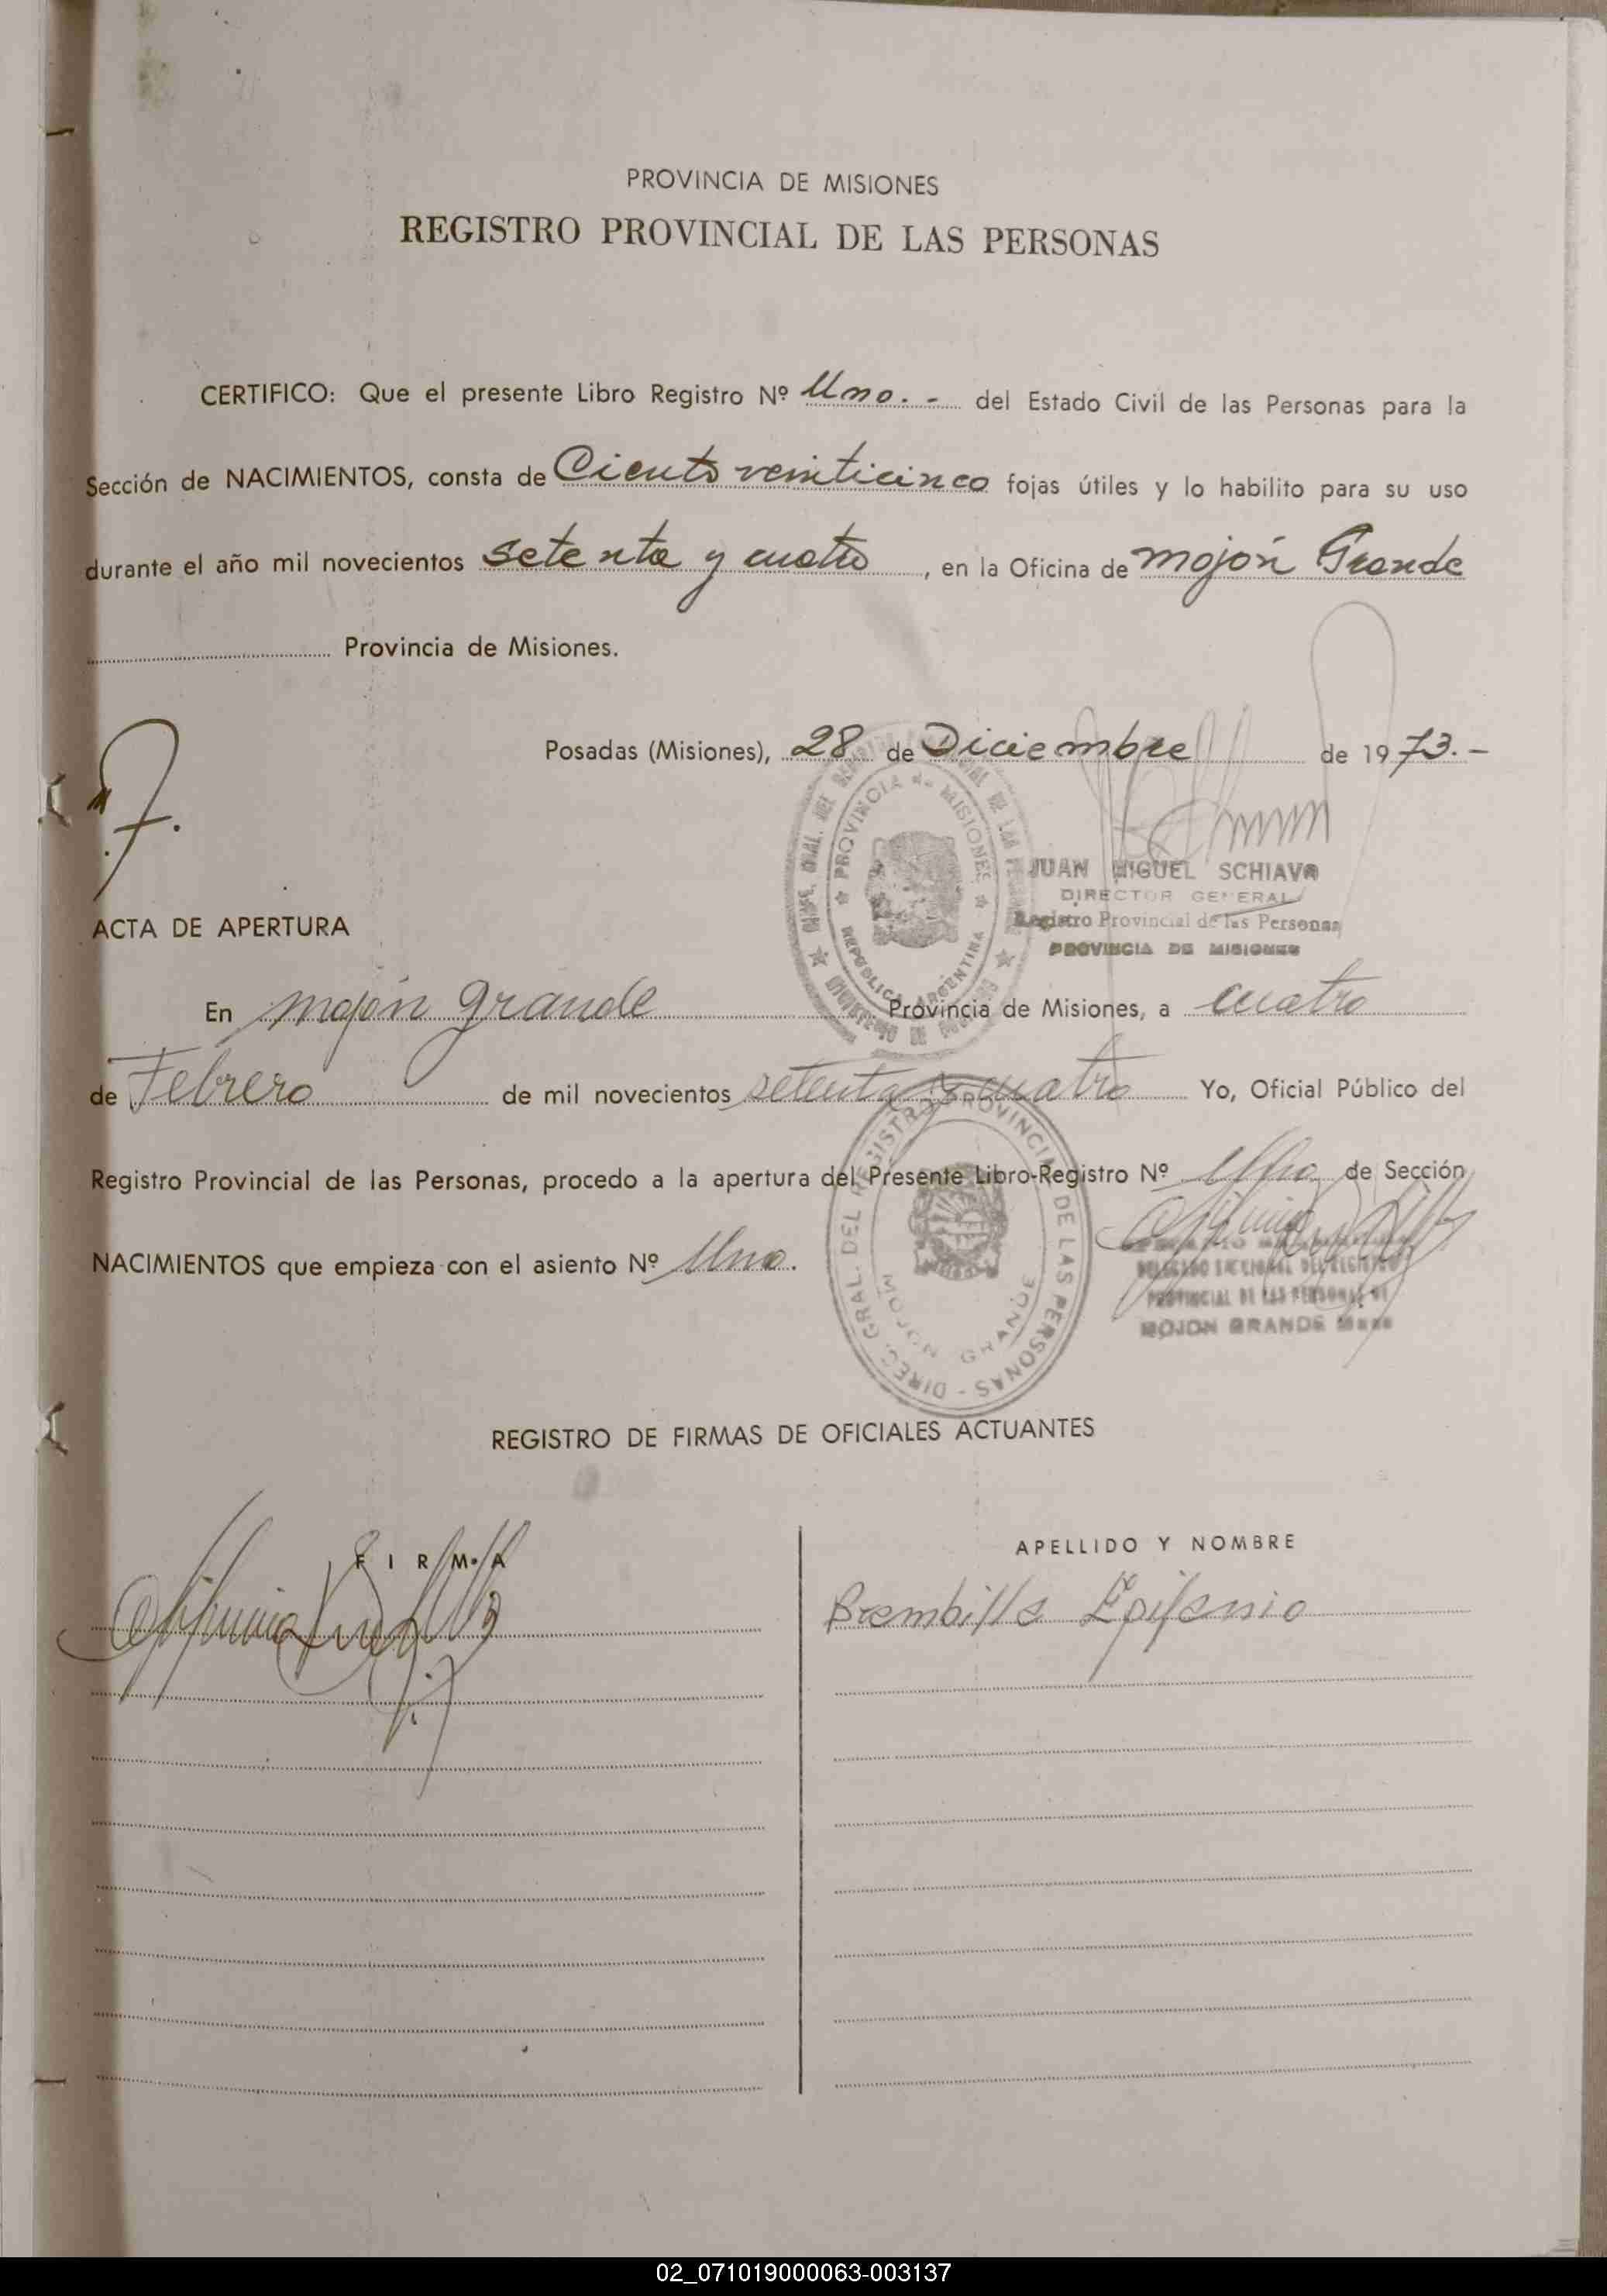 PROVINCIA DE MISIONES
REGISTRO PROVINCIAL DE LAS PERSONAS
CERTIFICO: Que el presente Libro Registro Nº Uno. - del Estado Civil de las Personas para la
Sección de NACIMIENTOS, consta de Ciento veinticinco fojas útiles y lo habilito para su uso
durante el año mil novecientos setenta y cuatro, en la Oficina de mojón Grande
Provincia de Misiones.
Posadas (Misiones), 28 de Diciembre de 1973.-
JUAN MIGUEL SCHIAVO
DIRECTOR GENERAL
Registro Provincial de las Personas
PROVINCIA DE MISIONES
PROVINCIA de MISIONES
REPUBLICA ARGENTINA
ACTA DE APERTURA
En mojón grande Provincia de Misiones, a cuatro
de Febrero de mil novecientos setenta y cuatro Yo, Oficial Público del
Registro Provincial de las Personas, procedo a la apertura del Presente Libro-Registro Nº Uno de Sección
NACIMIENTOS que empieza con el asiento Nº Uno.
DIREC. GRAL. DEL REGISTRO PROVINCIAL DE LAS PERSONAS -
MOJON GRANDE
DELEGADO SECCIONAL DEL REGISTRO
PROVINCIAL DE LAS PERSONAS DE
MOJON GRANDE
REGISTRO DE FIRMAS DE OFICIALES ACTUANTES
FIRMA
APELLIDO Y NOMBRE
Brembilla Epifanio
02_071019000063-003137